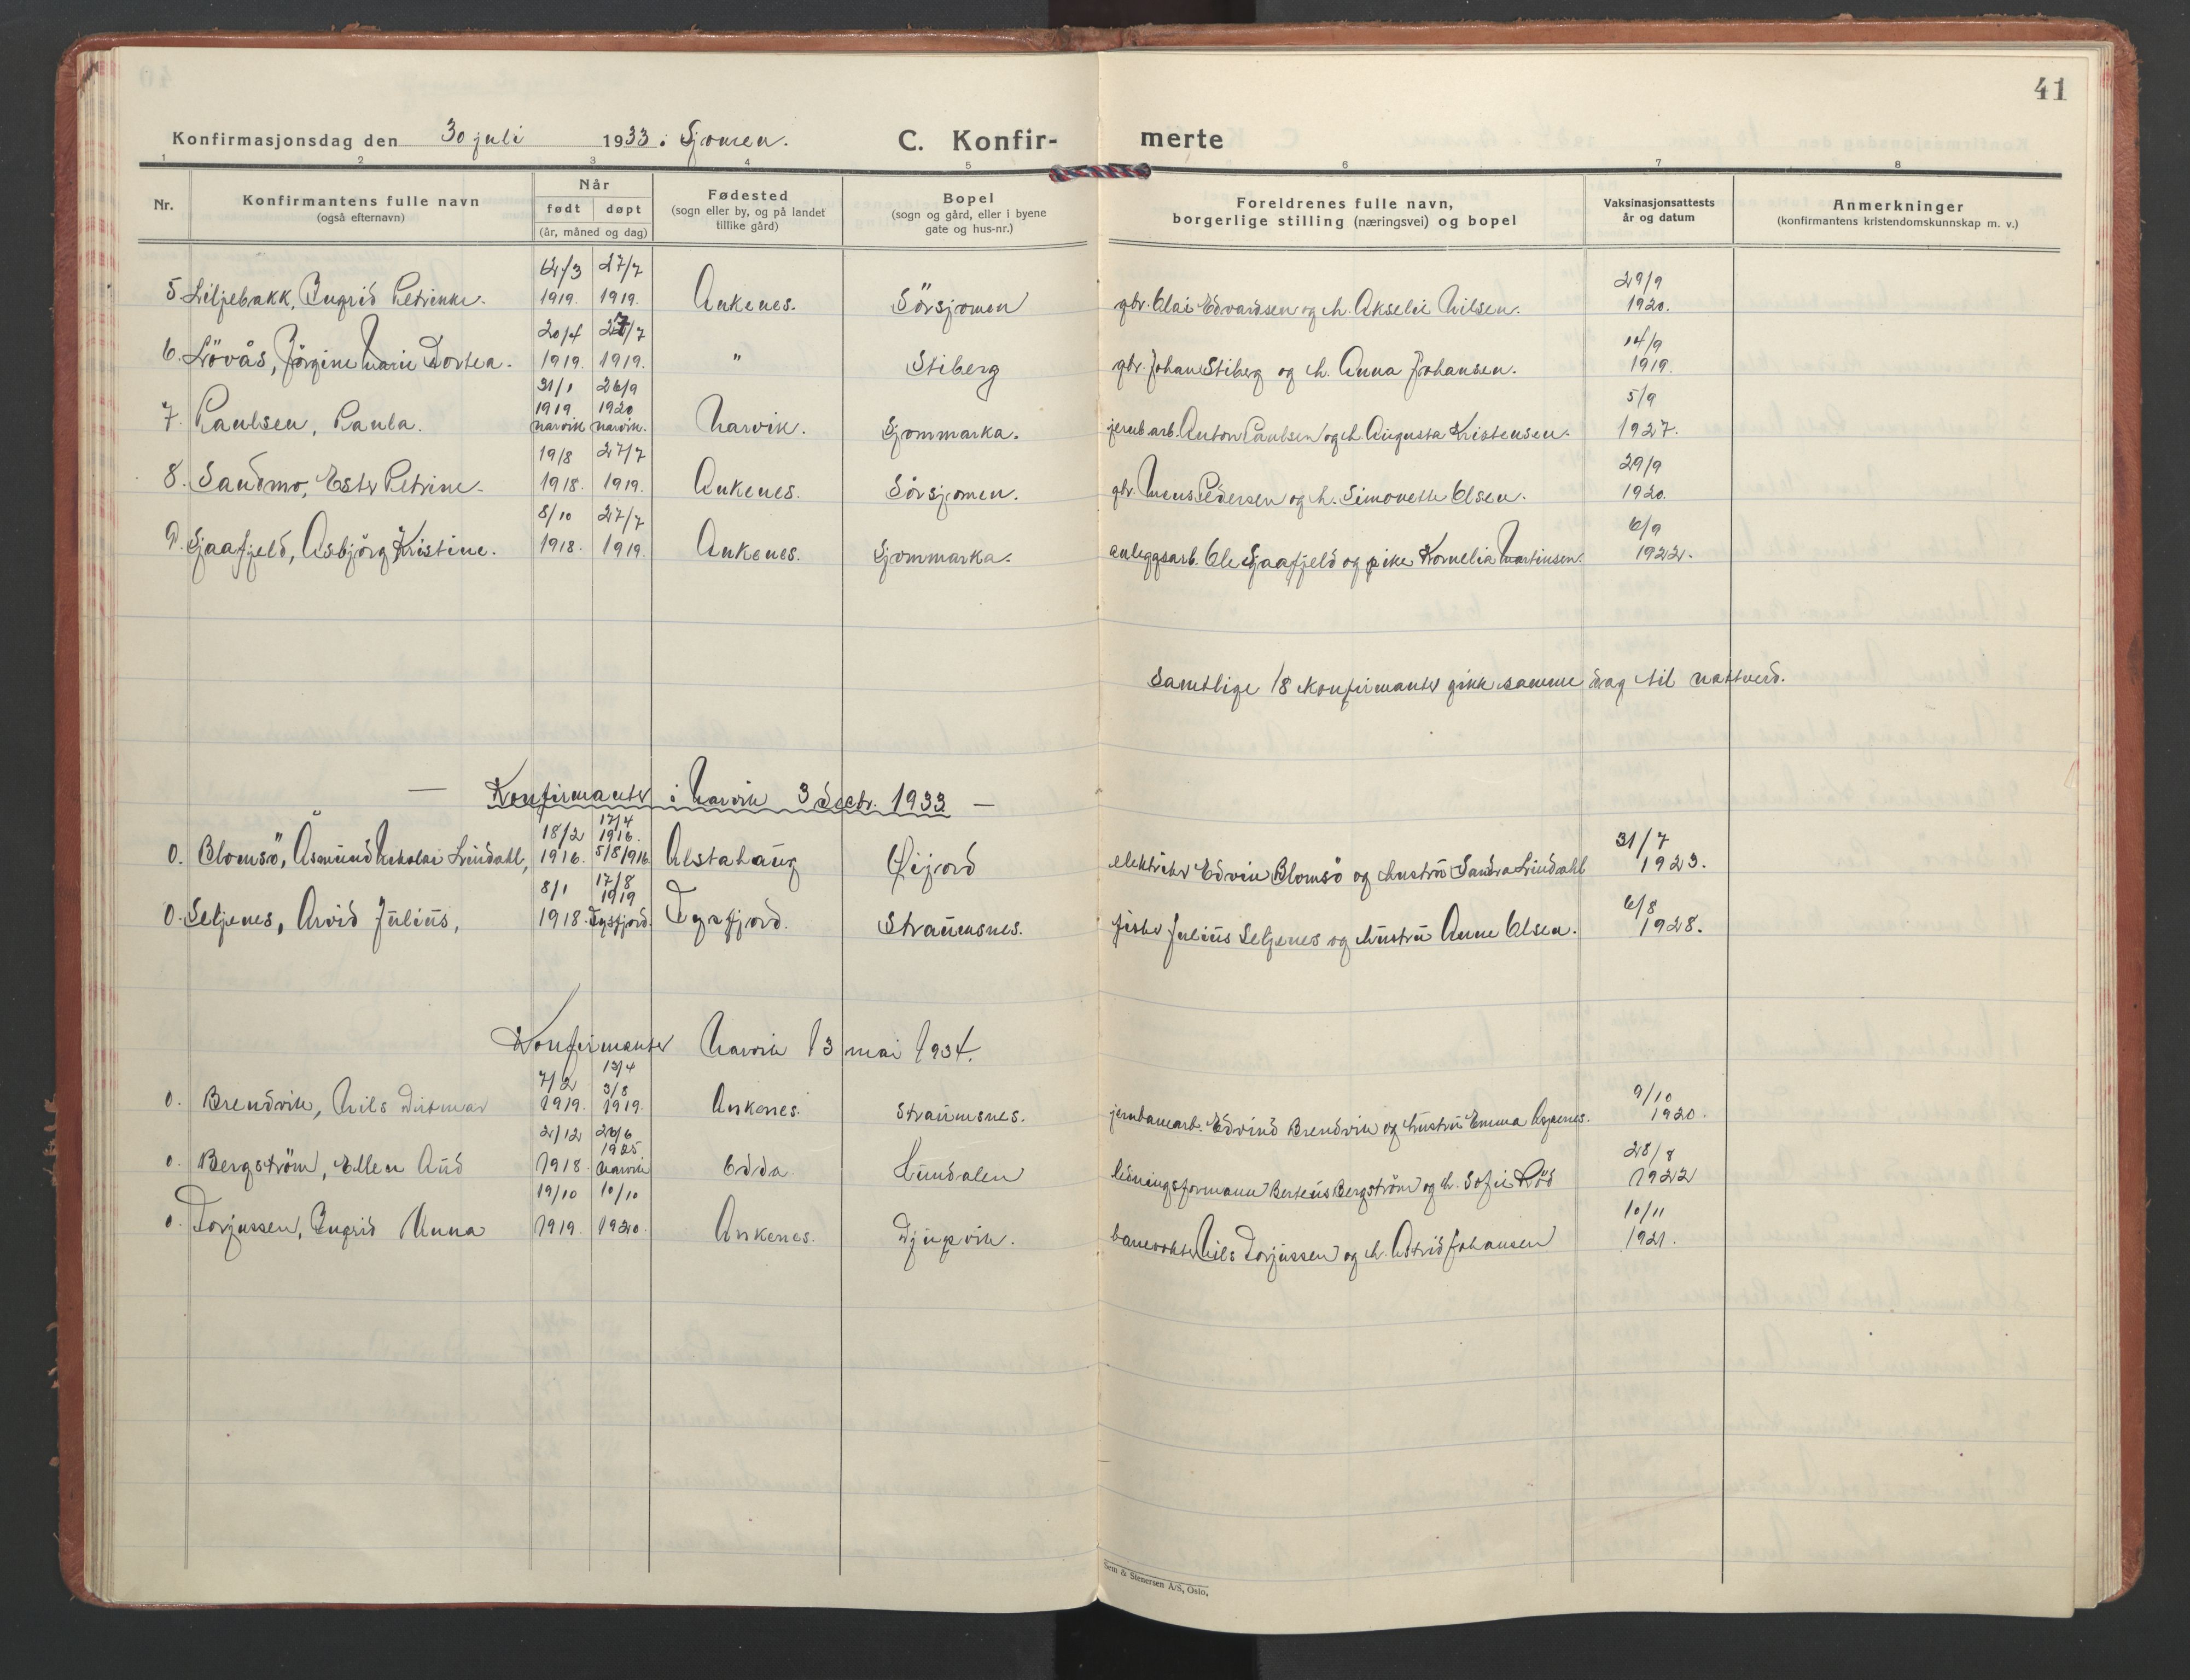 41
Konfirmasjonsdag den 30 juli 1933 i Sjomen. C. Konfir- merte
1 2 3 4 5 6 7 8
Nr. Konfirmantens fulle navn (også efternavn) Når født døpt (år, måned og dag) Fødested (sogn eller by, og på landet tillike gård) Bopel (sogn og gård, eller i byene gate og hus-nr.) Foreldrenes fulle navn, borgerlige stilling (næringsvei) og bopel Vaksinasjonsattests år og datum Anmerkninger (konfirmantens kristendomskunnskap m. v.)
5 Liljebakk, Ingrid Petrikke. 1919. 27/7 1919. Ankenes. Sörsjomen gbr. Olai Edvardsen og h. Akselie Nilsen. 29/9 1920.
6. Lövås, Jörgine Marie Dortea. 20/4 1919. 27/7 1919. " Stiberg gbr. Johan Stiberg og h. Anna Johansen. 14/9 1919.
7. Paulsen, Paula. 31/1 1919 Narvik 26/9 1920 Narvik. Narvik. Sjommarka. jernb.arb. Anton Paulsen og h. Augusta Kristensen. 5/9 1927.
8. Sandmo, Ester Petrine. 19/8 1918. 27/7 1919. Ankenes. Sörsjomen. gbr. Mons Pedersen og h. Simonette Olsen. 29/9 1920.
9. Sjaafjeld, Asbjörg Kristine. 8/10 1918. 27/7 1919. Ankenes. Sjommarka. anleggsarb. Ole Sjaafjeld og pike Kornelia Martinsen. 6/9 1922.
Samtlige 18 konfirmanter gikk samme dag til nattverd.
— Konfirmanter i Narvik 3 decbr. 1933 —
0. Blomsö, Åsmund Nikolai Lindahl, 18/2 1916. 17/4 1916. 5/8 1916. Alstahaug Öijord elektriker Edvin Blomsö og hustru Sandra Lindahl 31/7 1923.
0. Seljenes, Arvid Julius, 8/1 1918. 17/8 1919 Tysfjord. Tysfjord. Straumsnes. fisker Julius Seljenes og hustru Anne Olsen. 6/8 1928.
Konfirmanter Narvik 13 mai 1934.
0. Brendvik, Nils Ditmar 7/2 1919. 13/4 3/8 1919. Ankenes. Straumsnes. jernbanearb. Edvind Brendvik og hustru Emma Aspenes. 9/10 1920.
0. Bergström, Ellen Aud 2/12 1918. 26/6 1925 Narvik Odda Hundalen ledningsformann Berteus Bergström og h. Sofie Röd 28/8 1922
0. Torjussen, Ingrid Anna 19/10 1919. 10/10 1920. Ankenes. Djupvik. banevokter Nils Torjussen og h. Astrid Johansen 10/11 1921.
& Stenersen A/S, Oslo.